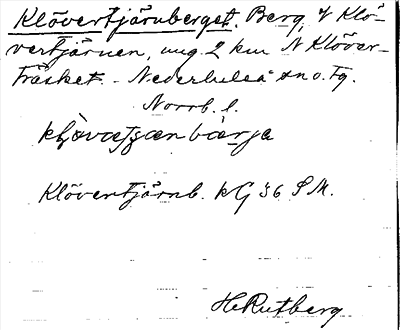 Klövertjärnberget. Berg, V Klö-
vertjärnen, ung. 2 km N Klöver-
träsket. Nederluleå sn o. tg.
Norrb. l.
Klövertjärnb. kG 36 S.M.
H. Rutberg